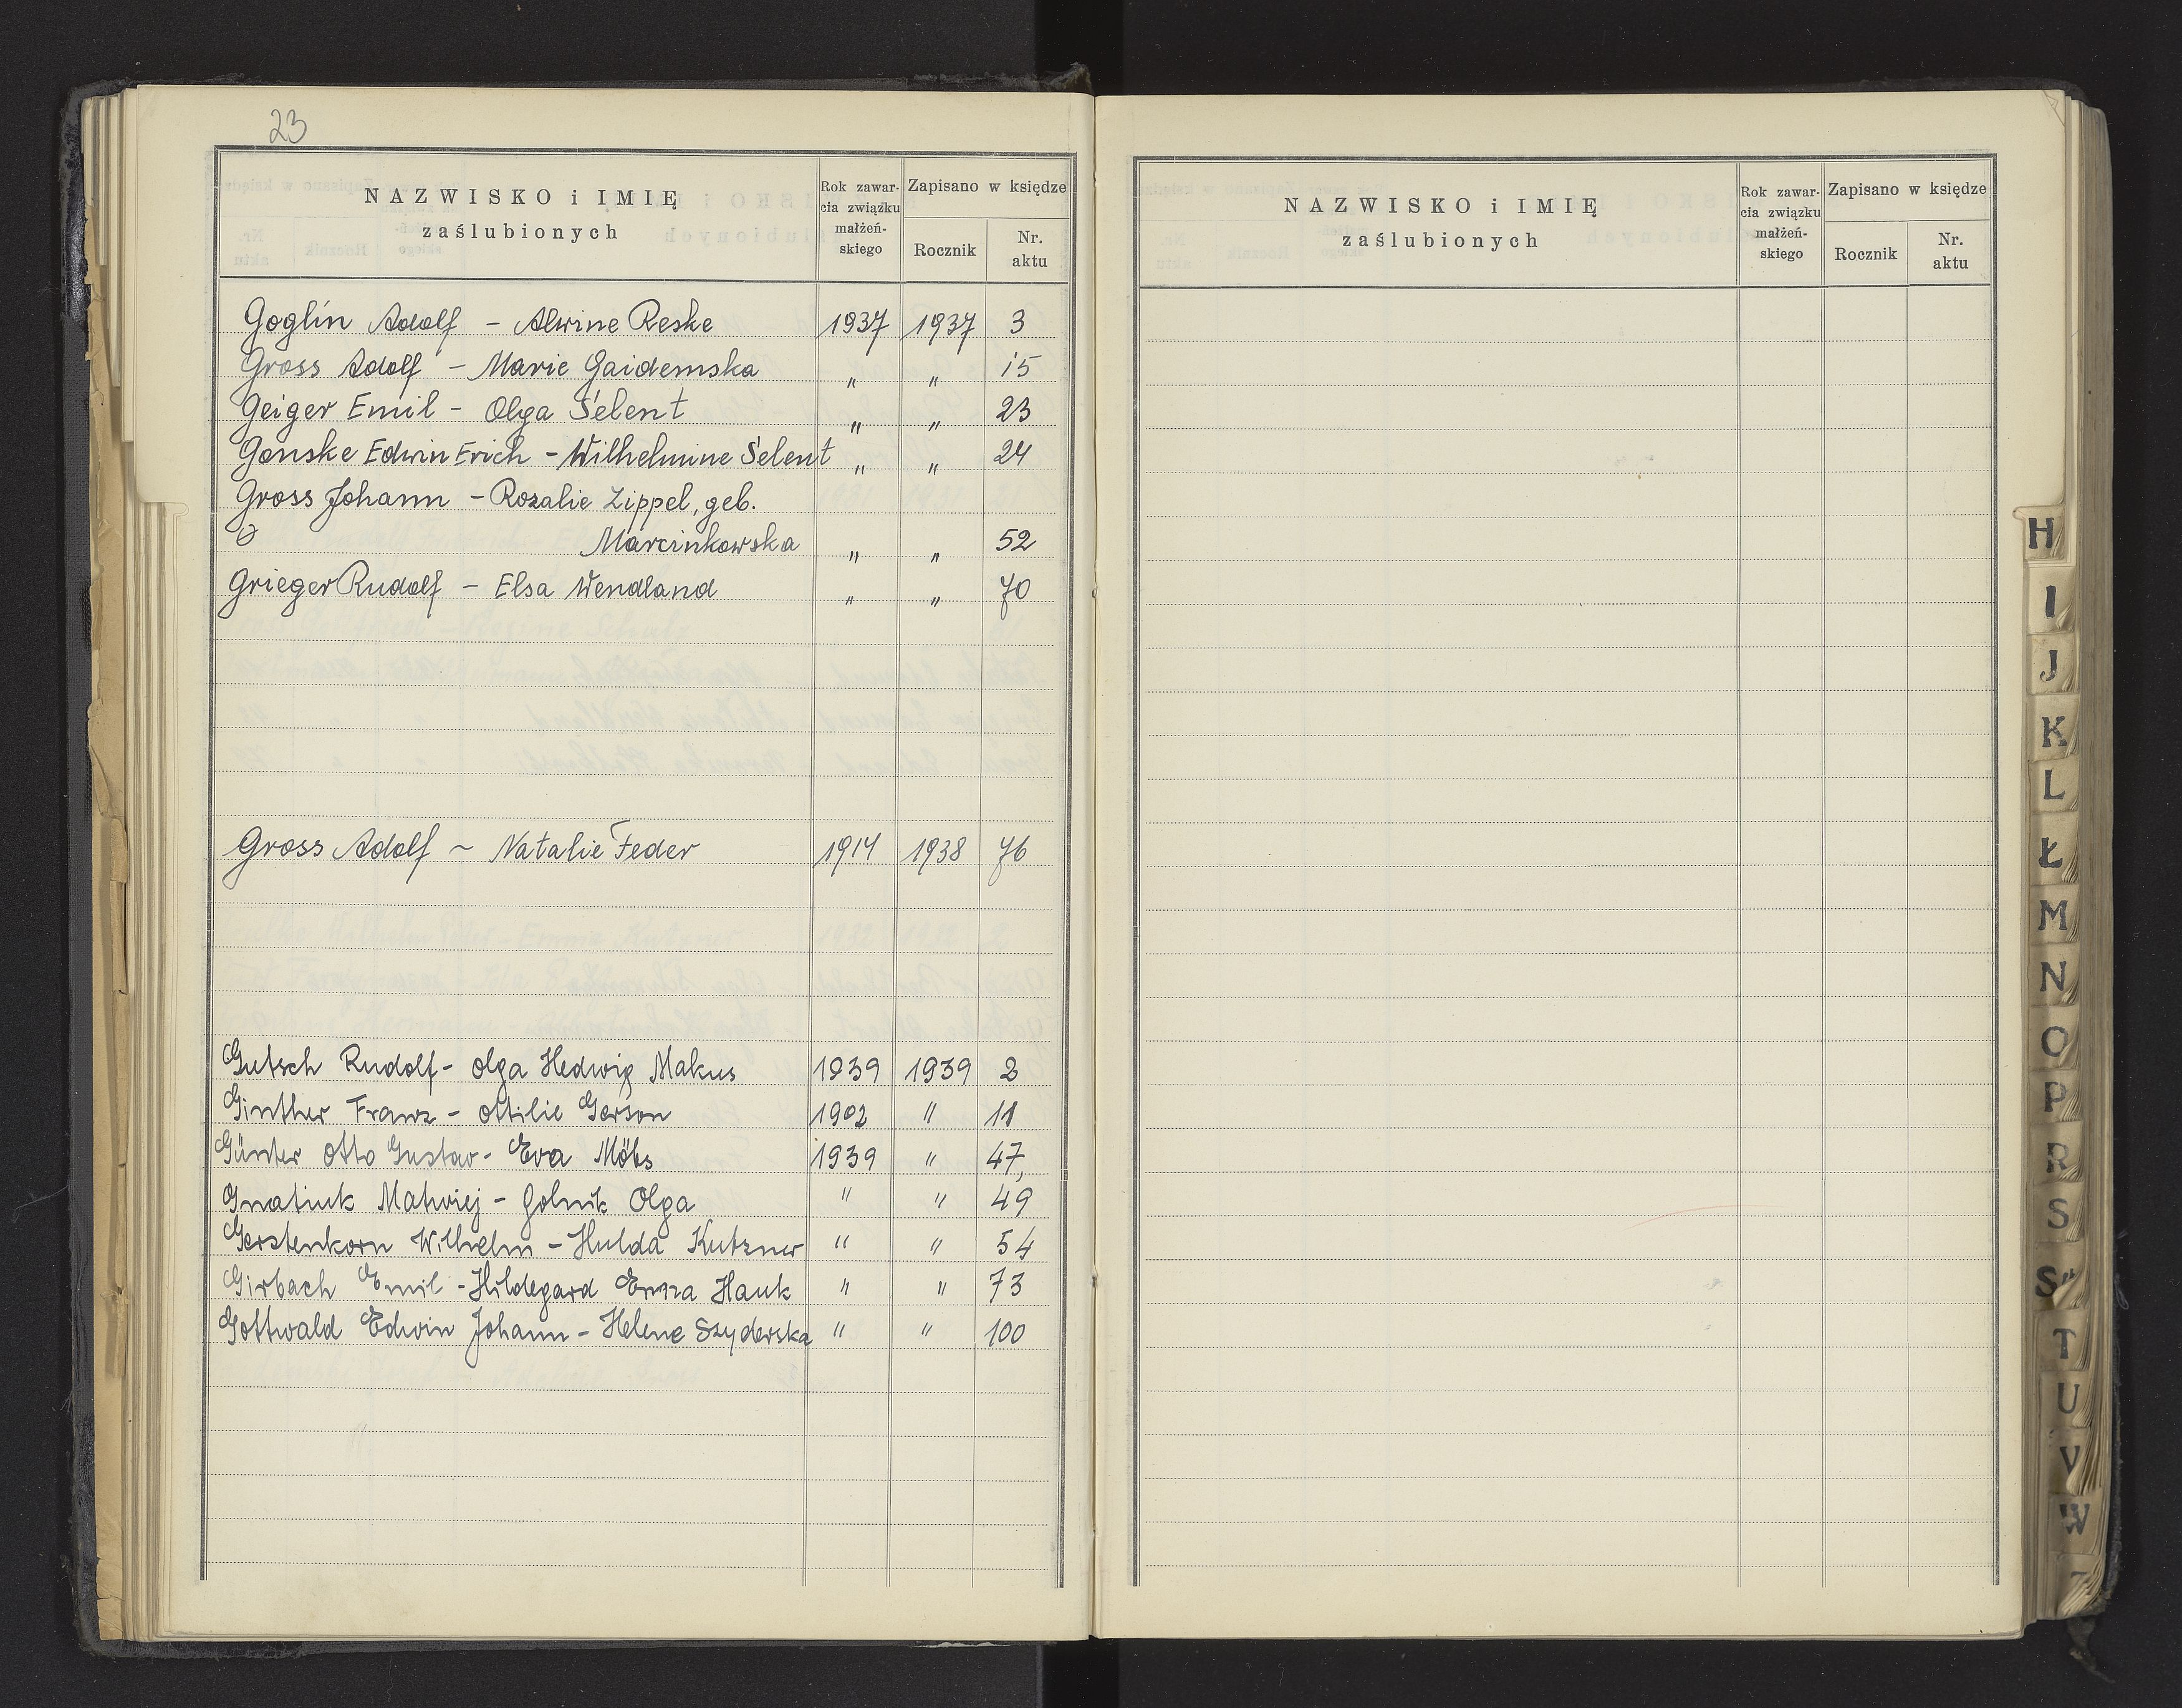 23
NAZWISKO i IMIĘ
zaślubionych
Rok zawar-
cia związku
małżeń-
skiego
Zapisano w księdze
Rocznik
Nr.
aktu
Goglin Adolf – Alwine Reske 1937 1937 3
Gross Adolf – Marie Gaidemska " " 15
Geiger Emil – Olga Selent " " 23
Genske Edwin Erich – Wilhelmine Selent " " 24
Gross Johann – Rozalie Zippel, geb.
Marcinkowska " " 52
Grieger Rudolf – Elsa Wendland " " 70
Gross Adolf ~ Natalie Feder 1914 1938 76
Gutsch Rudolf – Olga Hedwig Makus 1939 1939 2
Ginther Franz – Ottilie Gerson 1902 " 11
Günter Otto Gustav – Eva Möbs 1939 " 47,
Gnatiuk Matwiej – Golnik Olga " " 49
Gerstenkorn Wilhelm – Hulda Kutzner " " 54
Girbach Emil – Hildegard Erna Hauk " " 73
Gottwald Edwin Johann – Helene Szyderska " " 100
NAZWISKO i IMIĘ
zaślubionych
Rok zawar-
cia związku
małżeń-
skiego
Zapisano w księdze
Rocznik
Nr.
aktu
H
I
J
K
L
Ł
M
N
O
P
R
S
Ś
T
U
V
W
Z